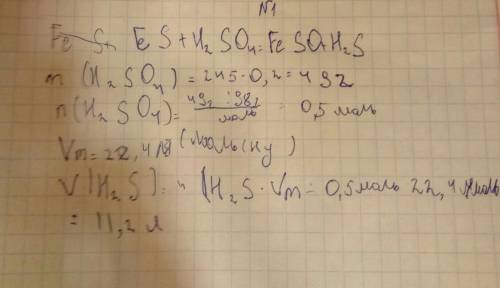 №1
Fe S+ FeS + H₂SO₄ = FeSO₄ + H₂S
m (H₂SO₄) = 245·0,2 = 49г
n(H₂SO₄) = 49г : 98г/моль = 0,5 моль
Vm = 22,4 л/моль (ну)
V(H₂S) = n(H₂S · Vm = 0,5 моль 22,4 л/моль
= 11,2 л